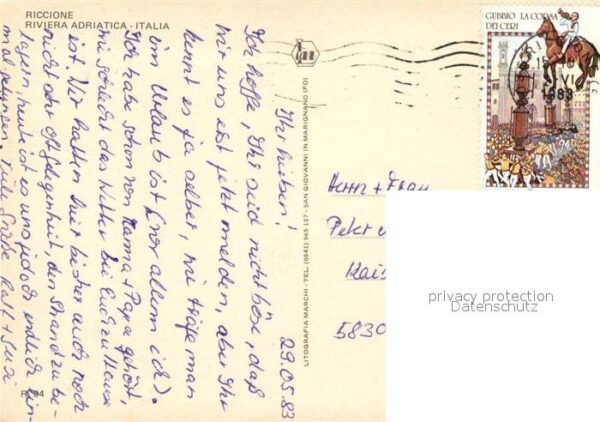 RICCIONE
RIVIERA ADRIATICA - ITALIA
GUBBIO LA CORSA
DEI CERI
1983
LITOGRAFIA MARCHI - TEL. (0541) 965 157 - SAN GIOVANNI IN MARIGNANO (FO)
R. 94
29.05.83
Ihr Lieben!
Ich hoffe, Ihr seid nicht böse, daß
wir uns erst jetzt melden, aber Ihr
kennt es ja selber, wie träge man
im Urlaub ist (vor allem ich).
Ich habe schon von Mama + Papa gehört,
wie schlecht das Wetter bei Euch zu Hause
ist. Wir hatten hier bisher auch noch
nicht oft Gelegenheit, den Strand zu be-
lagern, heute ist es uns jedoch endlich ein-
mal gelungen. Viele Grüße Ralf + Susi
Herrn + Frau
Peter
Kais
5830
privacy protection
Datenschutz